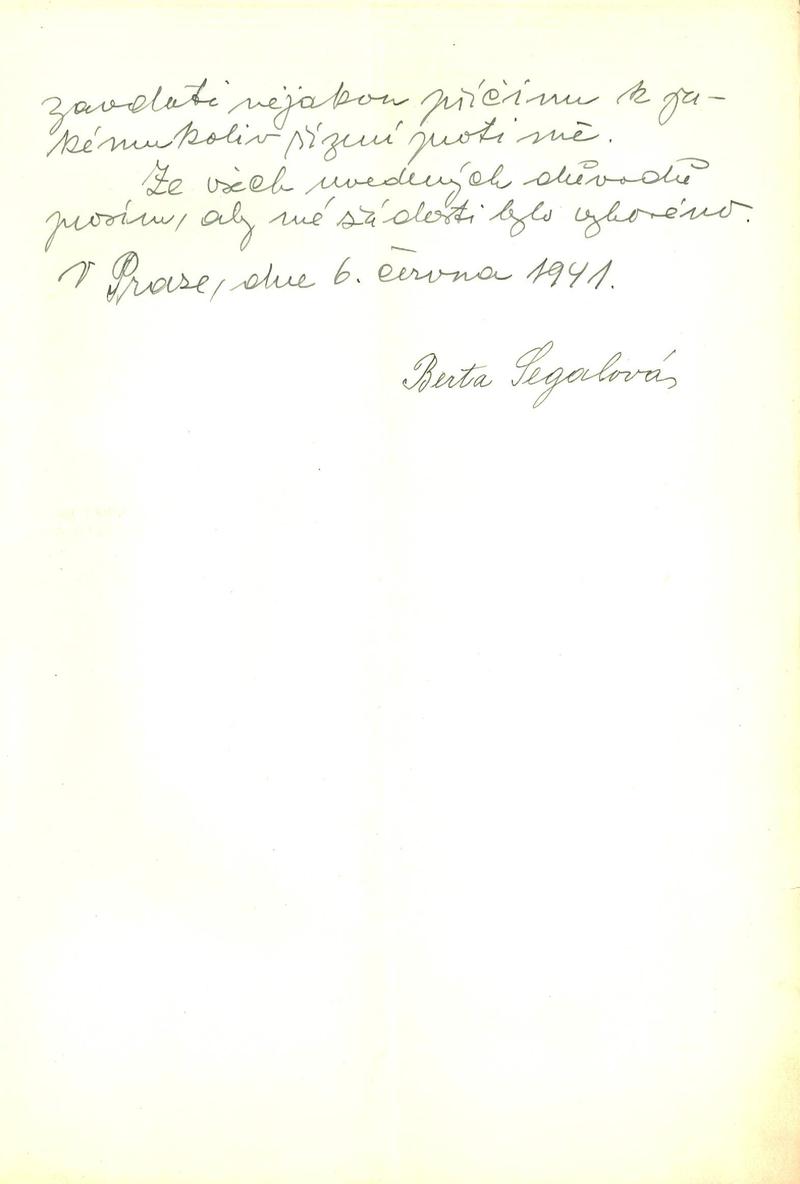 zavdati nějakou příčinu k ja-
kémukoliv řízení proti mě.
Ze všech uvedených důvodů
prosím, aby mé žádosti bylo vyhověno.
V Praze, dne 6. června 1941.
Berta Segalová